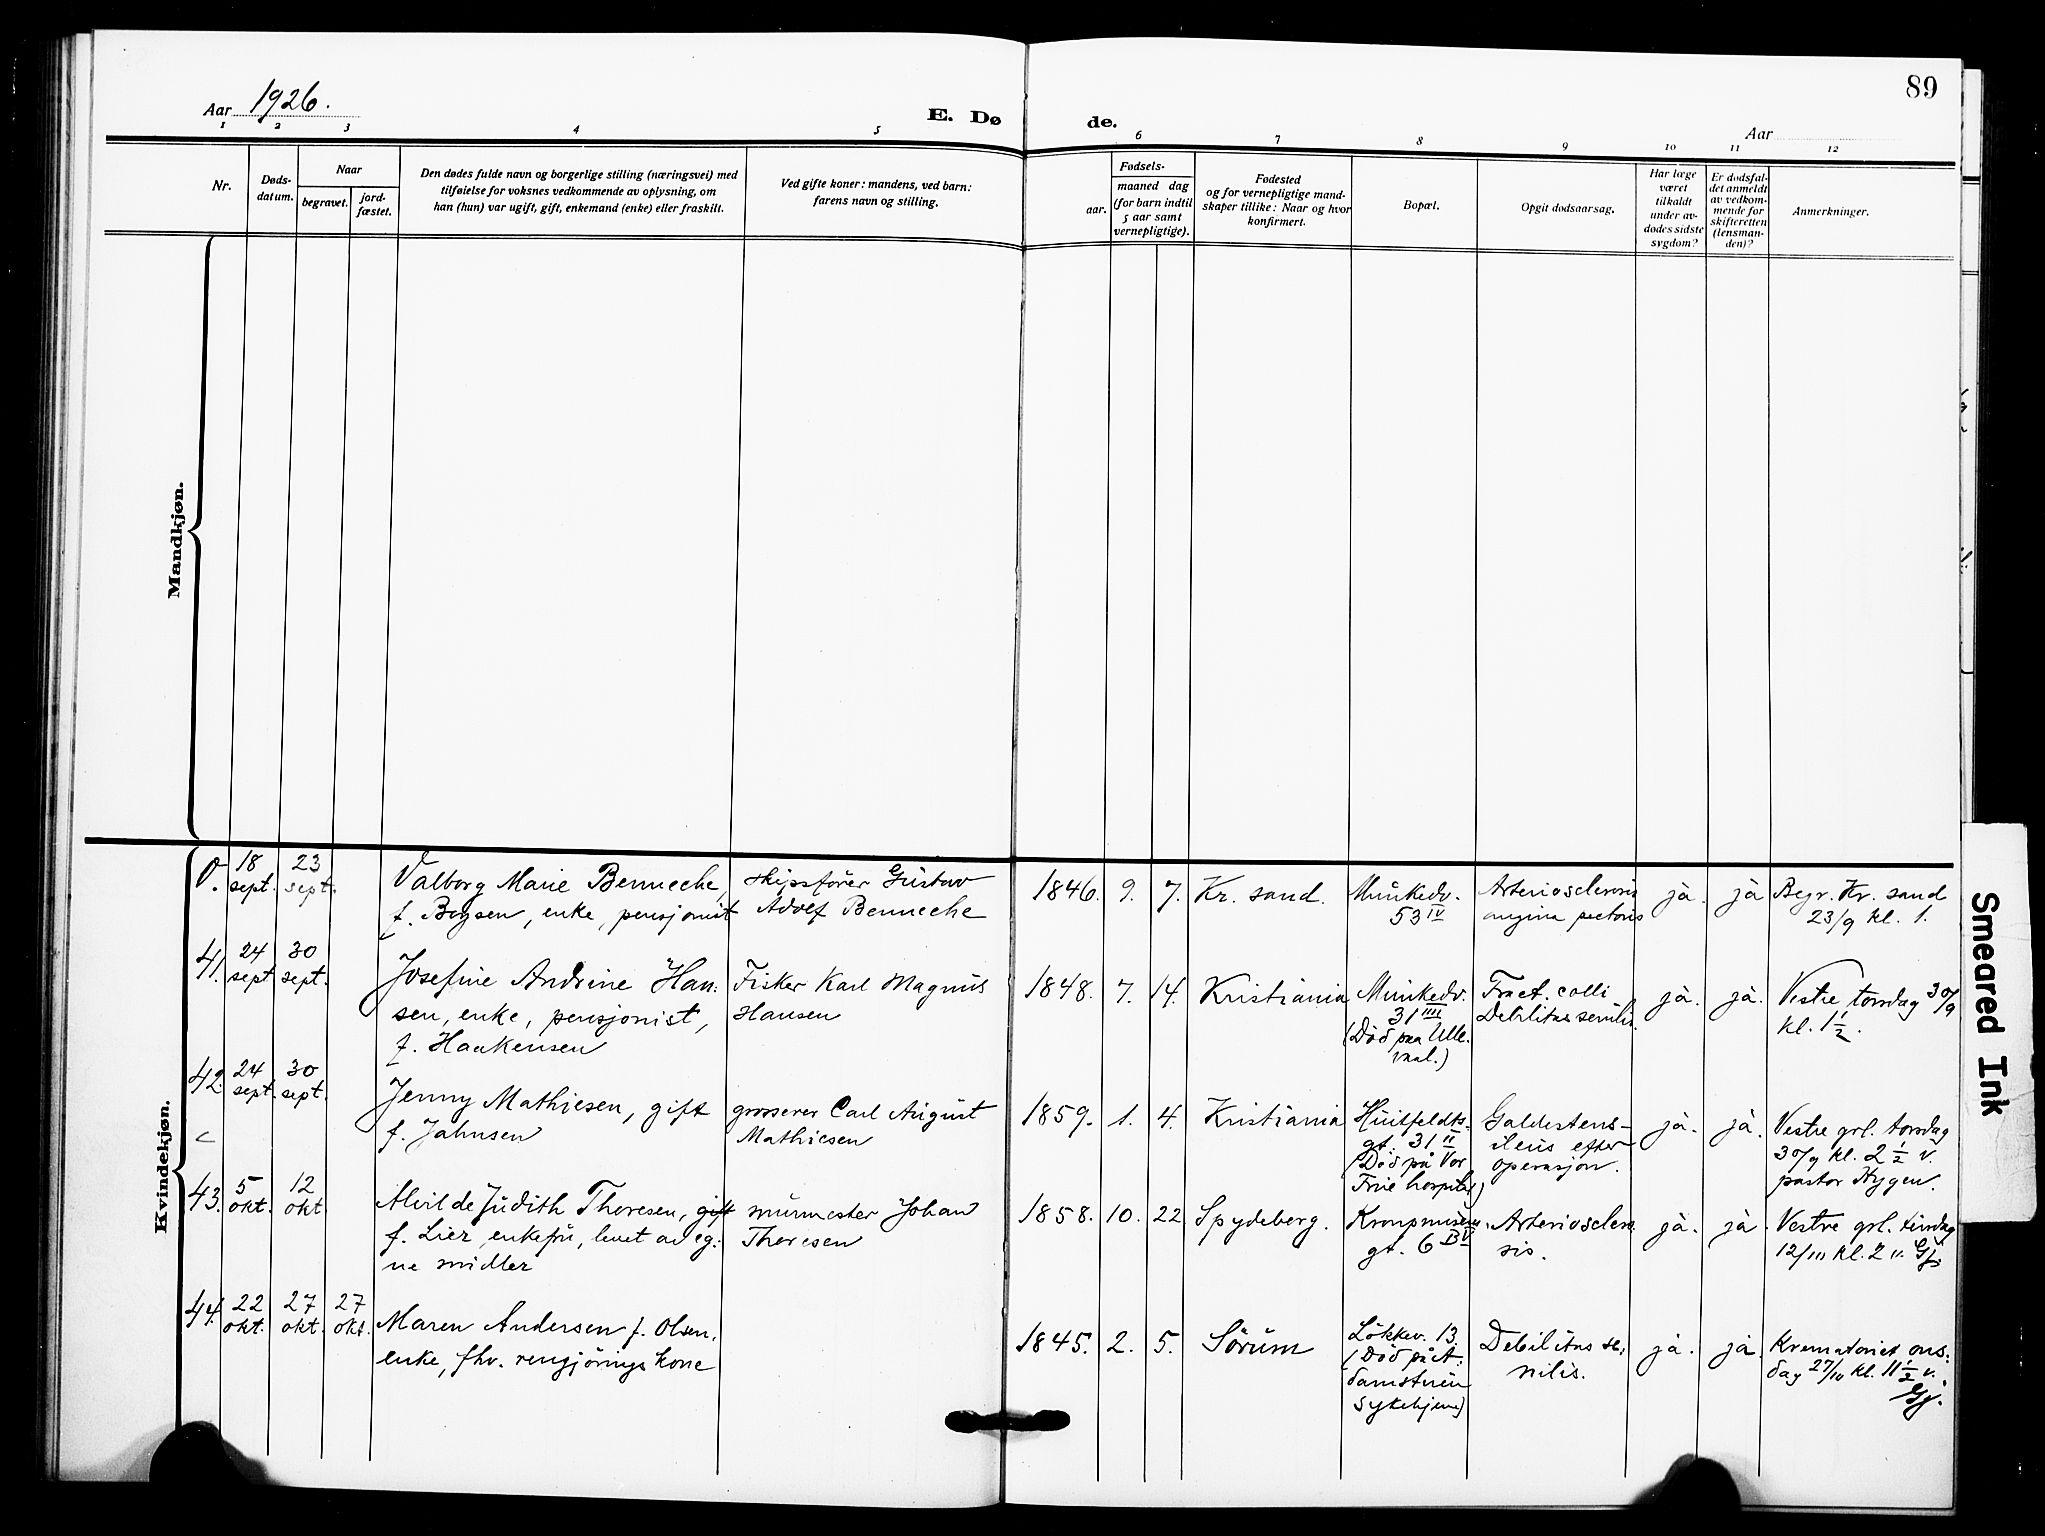 89
Aar 1926.
E. Dø de.
Aar
1 2 3 4 5 6 7 8 9 10 11 12
Nr.
Døds-
datum.
Naar
begravet.
jord-
fæstet.
Den dødes fulde navn og borgerlige stilling (næringsvei) med
tilføielse for voksnes vedkommende av oplysning, om
han (hun) var ugift, gift, enkemand (enke) eller fraskilt.
Ved gifte koner: mandens, ved barn:
farens navn og stilling.
Fødsels-
aar.
maaned dag
(for barn indtil
5 aar samt
vernepligtige).
Fødested
og for vernepligtige mand-
skaper tillike: Naar og hvor
konfirmert.
Bopæl.
Opgit dødsaarsag.
Har læge
været
tilkaldt
under av-
dødes sidste
sygdom?
Er dødsfal-
det anmeldt
av vedkom-
mende for
skifteretten
(lensman-
den)?
Anmerkninger.
Mandkjøn.
Kvindekjøn.
0.
18
sept.
23
sept.
Valborg Marie Benneche,
f. Boysen, enke, pensjonist
skipsfører Gustav
Adolf Benneche
1846. 9. 7. Kr. sand.
Munkedv.
53 IV
Arteriosclerosis
angina pectoris
ja. ja
Begr. Kr. sand
23/9 kl. 1.
41.
24
sept
30
sept.
Josefine Andrine Han-
sen, enke, pensjonist,
f. Haakensen
Fisker Karl Magnus
Hansen
1848. 7. 14. Kristiania
Munkedv.
31 IIII
(Död paa Ulle-
vaal.)
Fract. colli
Debilitas senilis.
ja. ja.
Vestre, torsdag 30/9
kl. 1 1/2.
42.
24
sept.
30
sept.
Jenny Mathiesen, gift
f. Jahnsen
grosserer Carl August
Mathiesen
1859. 1. 4. Kristiania
Huitfeldts-
gt. 31 II
(Död på Vor
Frue hospital)
Galdestens-
ileus efter
operasjon.
ja. ja.
Vestre grl. torsdag
30/9 kl. 2 1/2 v.
pastor Hygen.
43.
5
okt.
12
okt
Alvilde Judith Thoresen, gift
f. Lier, enkefru, levet av eg-
ne midler
murmester Johan
Thoresen
1858. 10. 22 Spydeberg.
gt. 6
Arterioscle­ro-
sis.
ja. ja.
Vestre grl. tirsdag
12/10 kl. 2 v. Gj.
44.
22
okt.
27
okt.
27
okt.
Maren Andersen f. Olsen,
enke, fhv. rengjöringskone
1845. 2. 5. Sörum
Lökkev. 13.
(Död på At.
damstuen
Sykehjem)
Debilitas se-
nilis.
ja. ja.
Krematoriet ons-
dag 27/10 kl. 11 1/2 v.
Gj.
Smeared Ink